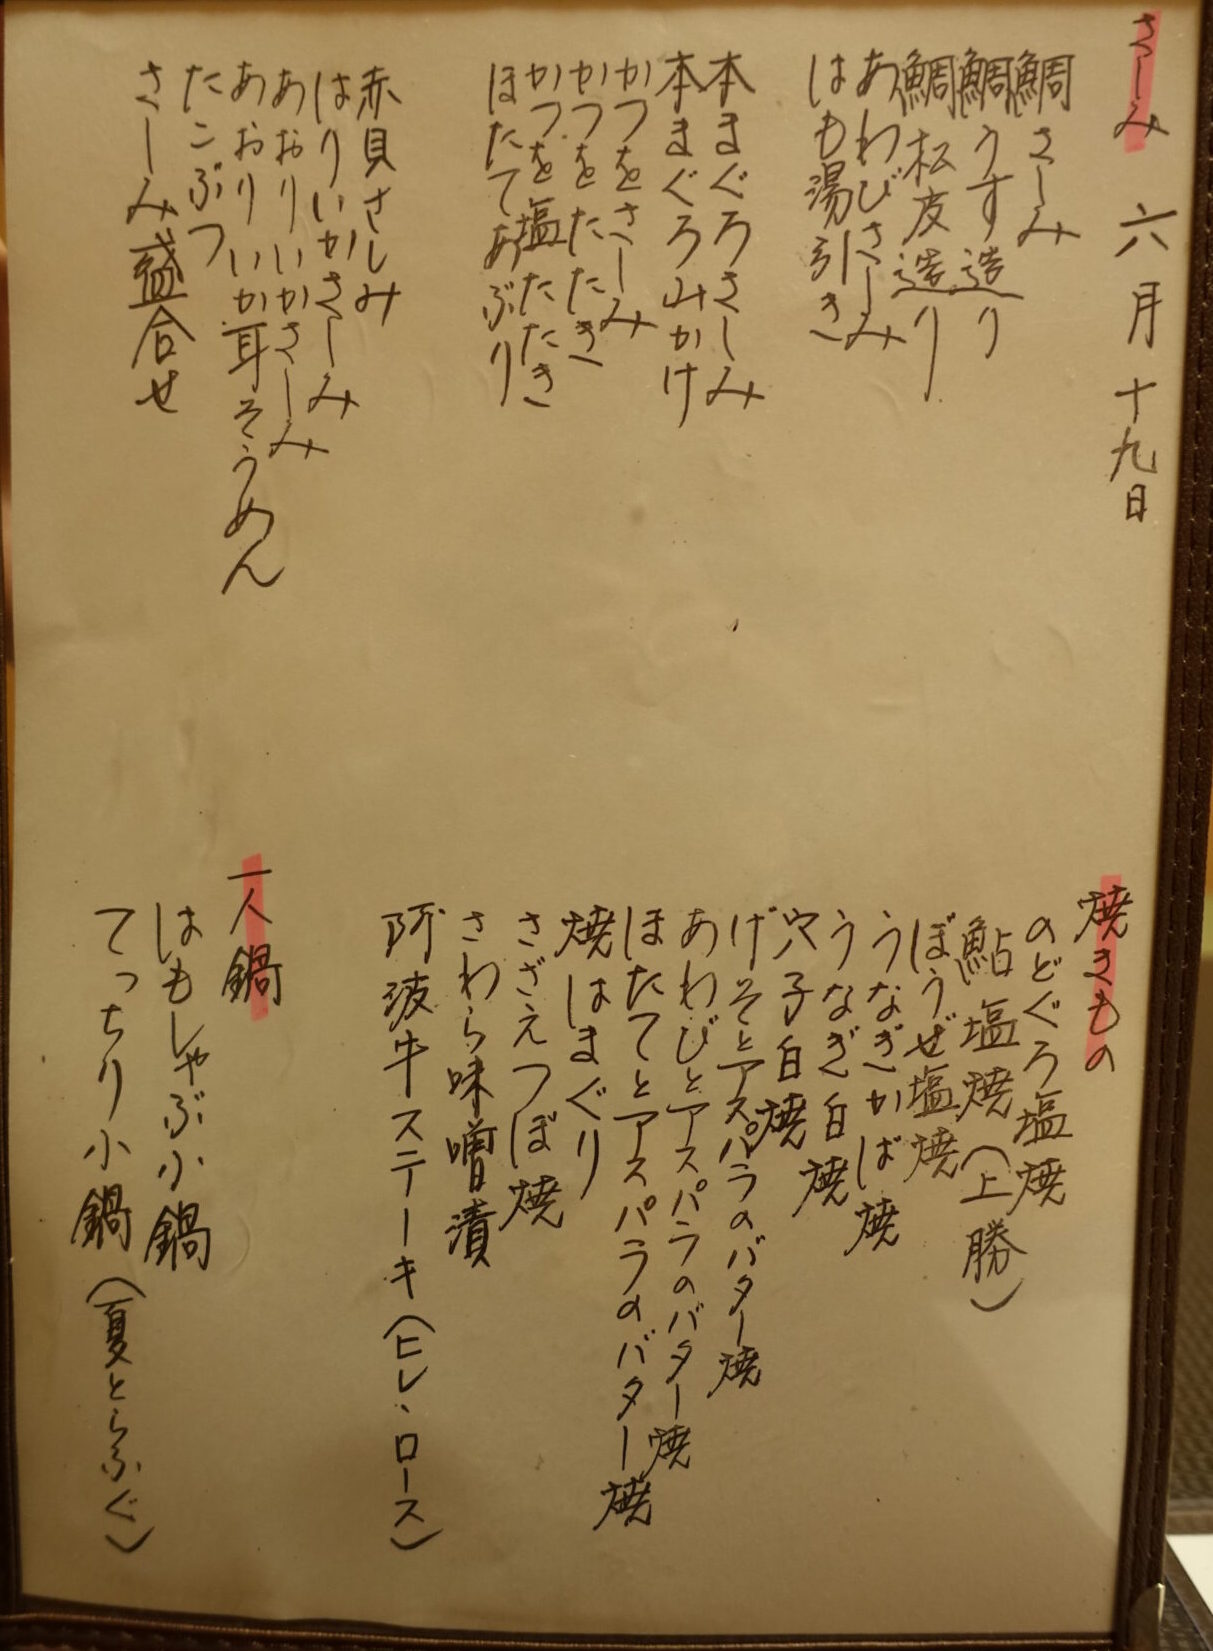 さしみ 六月十九日
鯛さしみ
鯛うす造り
鯛松皮造り
あわびさしみ
はも湯引き
本まぐろさしみ
本まぐろ山かけ
かつをさしみ
かつをたたき
かつを塩たたき
ほたてあぶり
赤貝さしみ
はりいかさしみ
あおりいかさしみ
あおりいか耳そうめん
たこぶつ
さしみ盛合せ
焼きもの
のどぐろ塩焼
鮎塩焼(上勝)
ぼうぜ塩焼
うなぎかば焼
うなぎ白焼
穴子白焼
げそとアスパラのバター焼
あわびとアスパラのバター焼
ほたてとアスパラのバター焼
焼はまぐり
さざえつぼ焼
さわら味噌漬
阿波牛ステーキ(ヒレ、ロース)
一人鍋
はもしゃぶ小鍋
てっちり小鍋(夏とらふぐ)